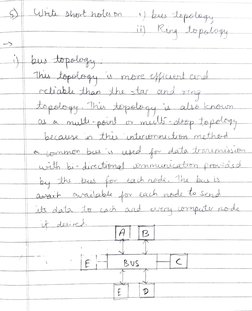 5) Write short notes on i) bus topology
ii) Ring topology
→
i) bus topology.
This topology is more efficient and
reliable than the star and ring
topology. This topology is also known
as a multi-point or multi-drop topology
because in this interconnection method
a common bus is used for data transmission
with bi-directional communication provided
by the bus for each node. The bus is
available for each node to send
its data to each and every computer node
if desired.
A B
E BUS C
E D